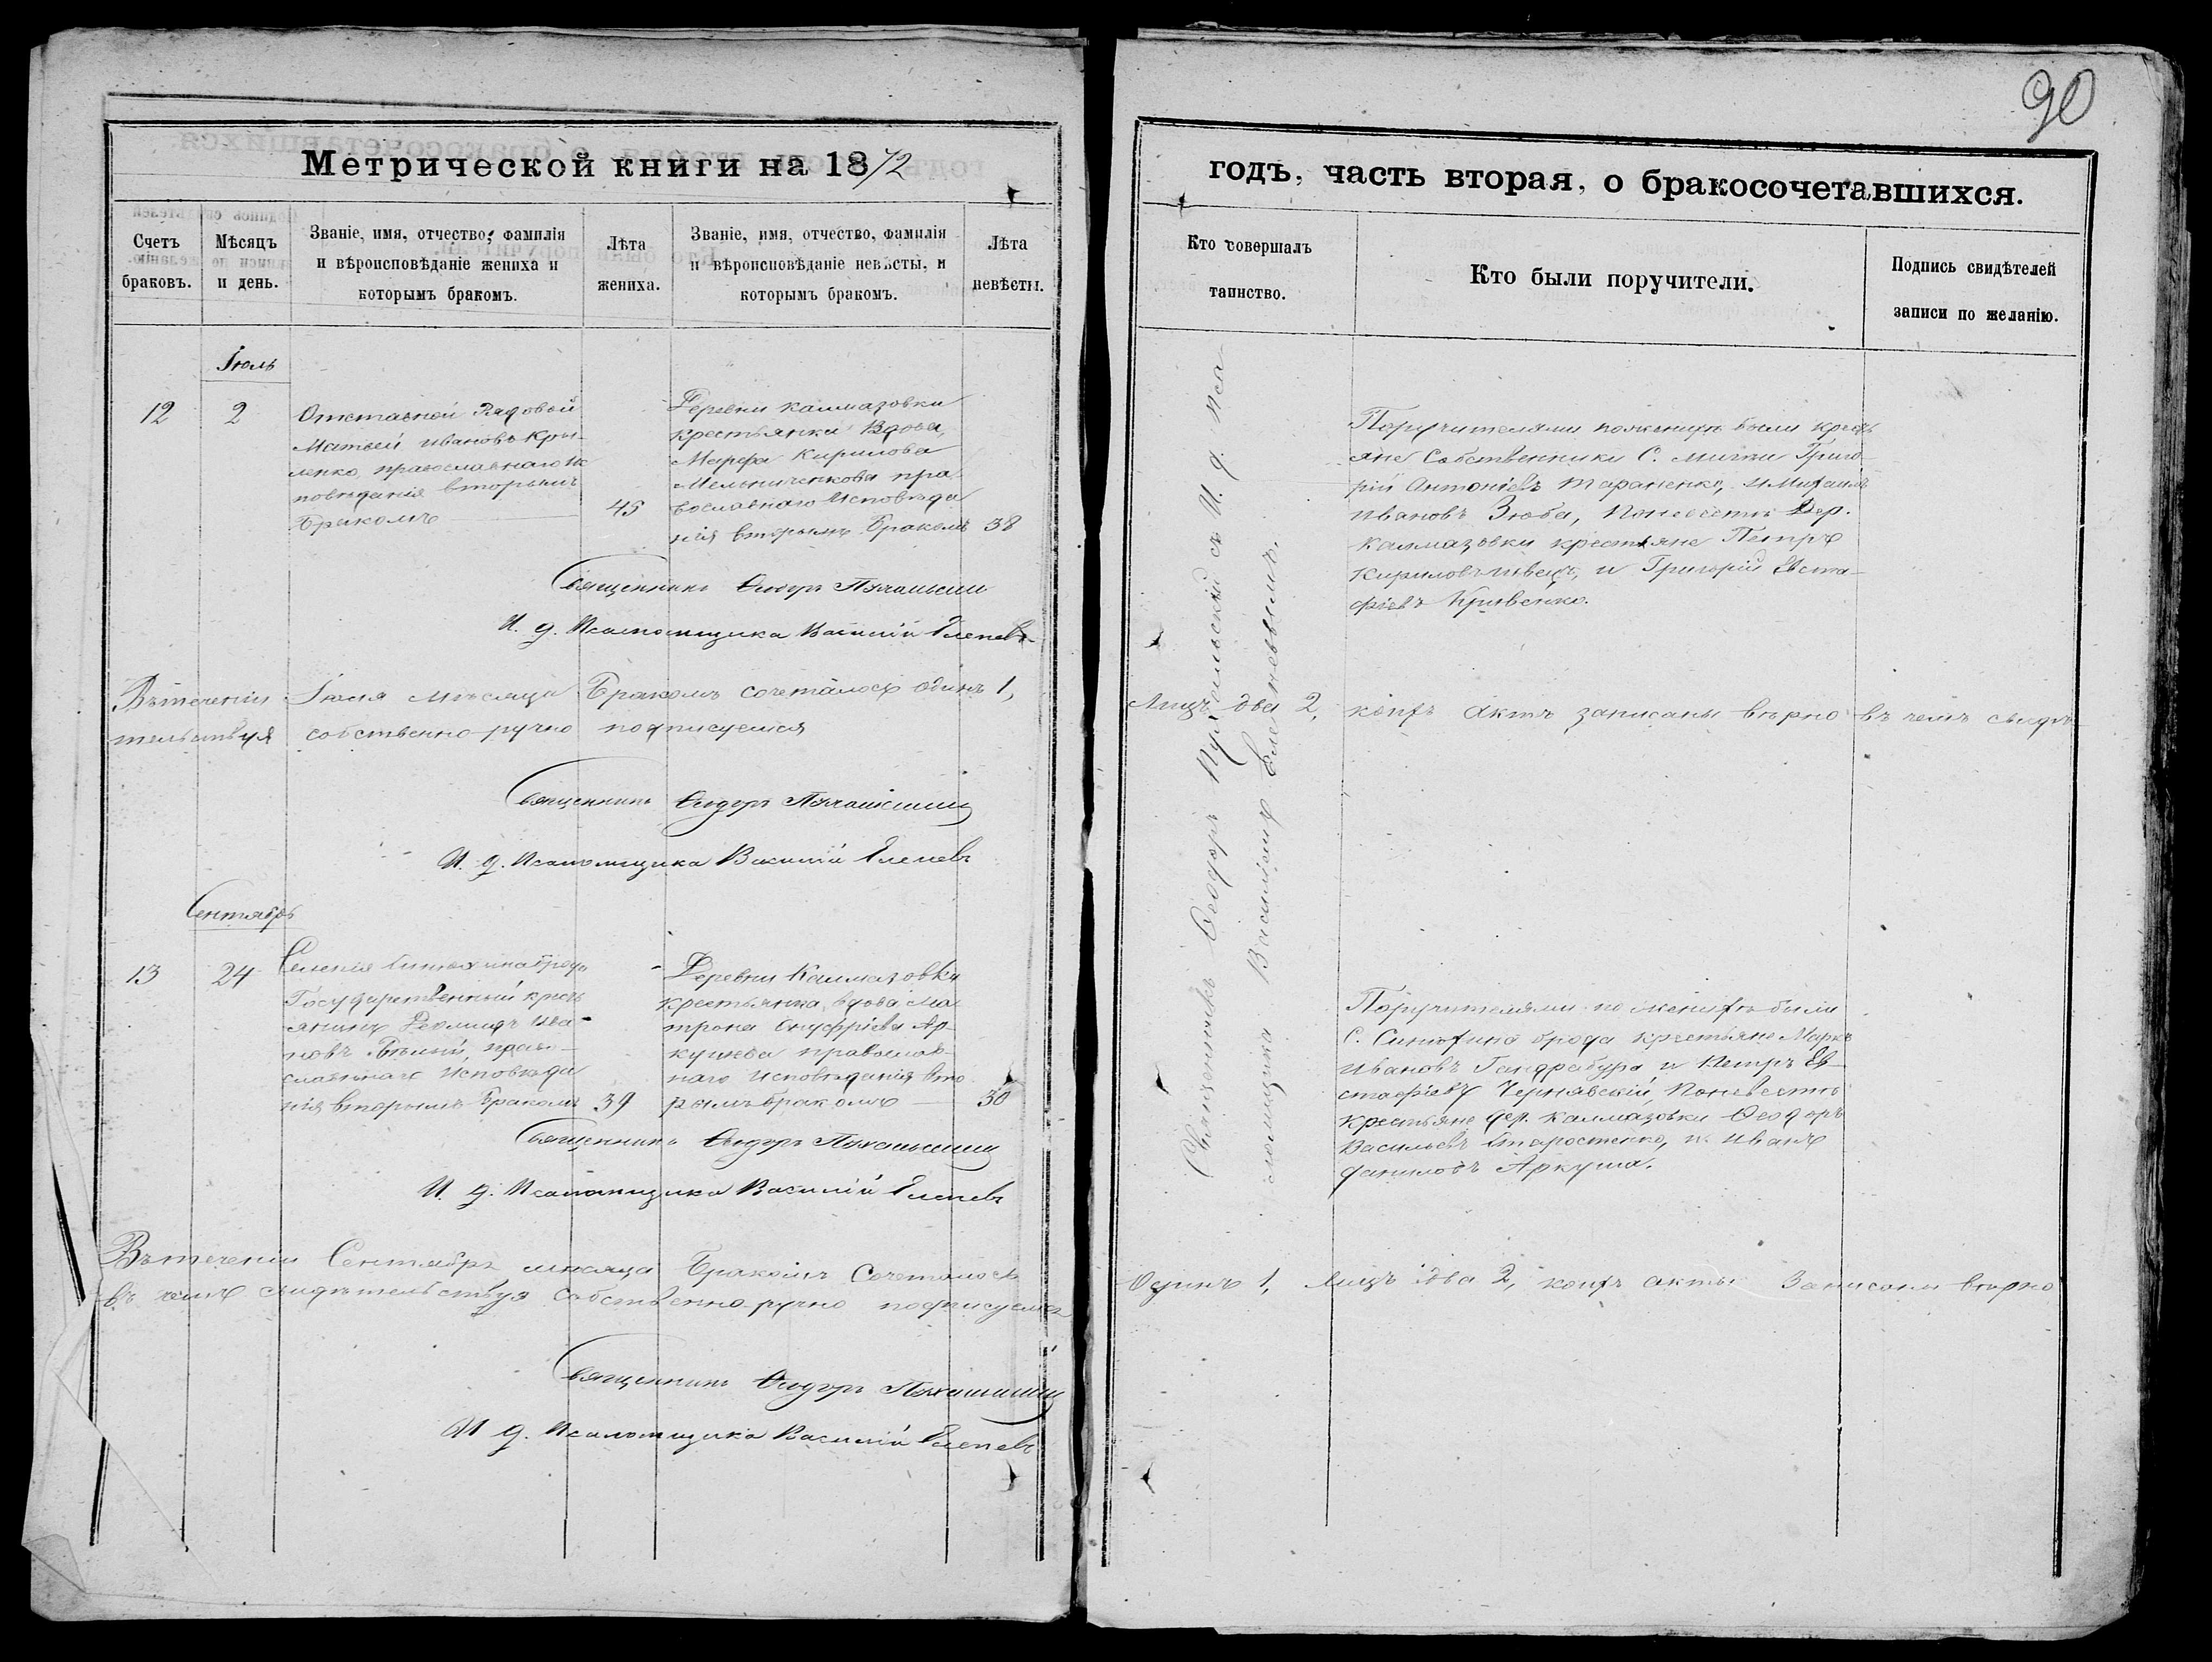 90
Метрической книги на 1872
годъ, часть вторая, о бракосочетавшихся.
Счетъ браковъ.
Мѣсяцъ и день.
Званіе, имя, отчество, фамилія и вѣроисповѣданіе жениха и которымъ бракомъ.
Лѣта жениха.
Званіе, имя, отчество, фамилія и вѣроисповѣданіе невѣсты, и которымъ бракомъ.
Лѣта невѣсты.
Кто совершалъ таинство.
Кто были поручители.
Подпись свидѣтелей записи по желанію.
Іюль
12
2
Отставной Рядовой
Матѳей Ивановъ
православнаго Ис
повѣданія вторымъ
Бракомъ
45
Деревни Калмазовки
крестьянка Вдова,
Марфа Кирилова
Мельниченкова пра
вославнаго Исповѣда
нія вторымъ Бракомъ
38
Священникъ Ѳеодоръ
И. д. Псаломщика Василій
Священникъ Ѳеодоръ съ И. д. Пса
ломщика Василіемъ
Поручителями по женихѣ были крест
яне Собственники С. Григо
рій Антоніевъ Тараненко, и Михаилъ
Ивановъ Зюба, по невѣстѣ Дер.
Калмазовки крестьяне Петръ
Кириловъ Швецъ, и Григорій Евста
фіевъ Кривенко.
Въ теченіи Іюля мѣсяца Бракомъ сочеталось одинъ 1,
Лицъ два 2, коихъ актъ записаны вѣрно въ чемъ свидѣ
тельствуя собственно ручно подписуемся
Священникъ Ѳеодоръ
И. д. Псаломщика Василій
Сентябрь
13
24
Селенія Синюхина Брода
Государственный крест
янинъ Ива
новъ Бѣлый, право
славнаго Исповѣда
нія вторымъ Бракомъ
39
Деревни Калмазовки
крестьянка, вдова Ма
трона Онуфріева Ар
кушева православ
наго Исповѣданія вто
рымъ бракомъ
30
Священникъ Ѳеодоръ
И. д. Псаломщика Василій
Поручителями по женихѣ были
С. Синюхина брода крестьяне Марко
Ивановъ Гандрабура и Петръ Ев
стафіевъ Чернявскій, по невѣстѣ
крестьяне дер. Калмазовки Ѳеодоръ
Васильевъ Старостенко, и Иванъ
Даниловъ Аркуша.
Въ теченіи Сентября мѣсяца Бракомъ Сочеталось
Одинъ 1, Лицъ два 2, коихъ акты Записаны вѣрно
въ чемъ свидѣтельствуя Собственно ручно подписуемся
Священникъ Ѳеодоръ
И д. Псаломщика Василій